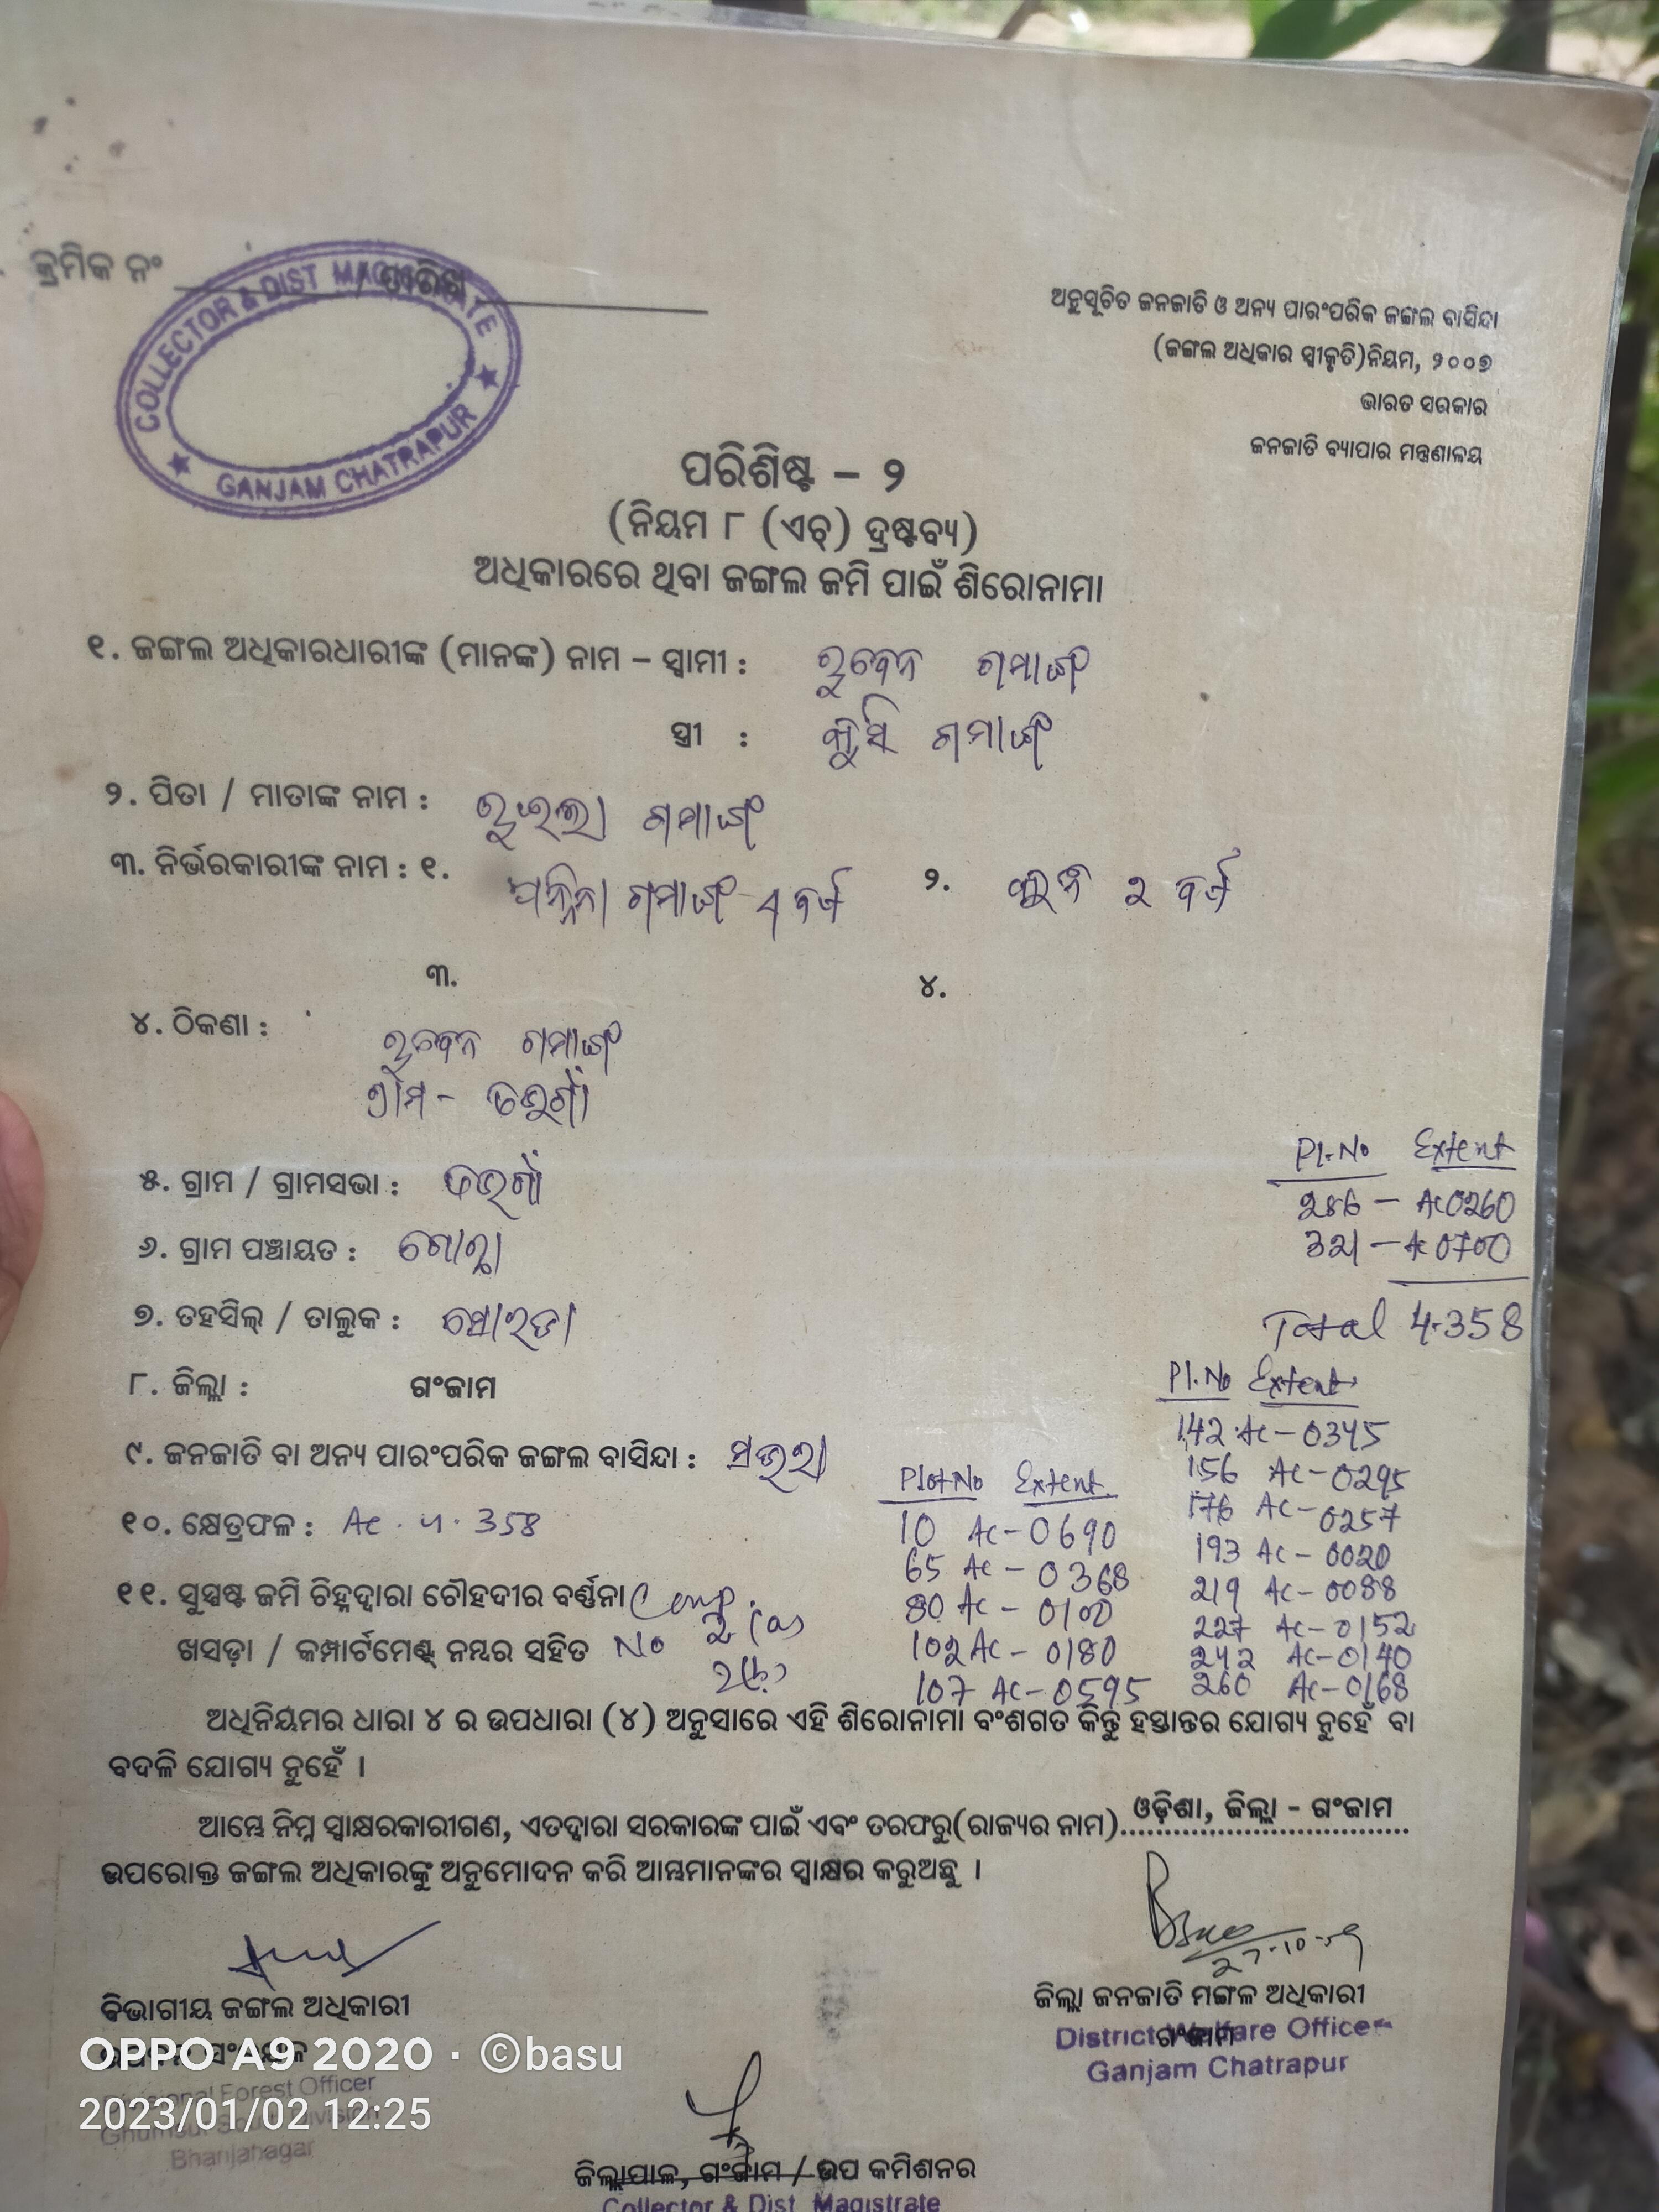 କ୍ରମିକ ନଂ / ତାରିଖ
COLLECTOR & DIST MAGISTRATE
GANJAM CHATRAPUR
ଅନୁସୂଚିତ ଜନଜାତି ଓ ଅନ୍ୟ ପାରଂପରିକ ଜଙ୍ଗଲ ବାସିନ୍ଦା
(ଜଙ୍ଗଲ ଅଧିକାର ସ୍ୱୀକୃତି)ନିୟମ, ୨୦୦୭
ଭାରତ ସରକାର
ଜନଜାତି ବ୍ୟାପାର ମନ୍ତ୍ରଣାଳୟ
ପରିଶିଷ୍ଟ – ୨
(ନିୟମ ୮ (ଏଚ୍) ଦ୍ରଷ୍ଟବ୍ୟ)
ଅଧିକାରରେ ଥିବା ଜଙ୍ଗଲ ଜମି ପାଇଁ ଶିରୋନାମା
୧. ଜଙ୍ଗଲ ଅଧିକାରଧାରୀଙ୍କ (ମାନଙ୍କ) ନାମ – ସ୍ୱାମୀ : ରୁବେନ ଗମାଙ୍ଗ
ସ୍ତ୍ରୀ : ଗମାଙ୍ଗ
୨. ପିତା / ମାତାଙ୍କ ନାମ : ଗମାଙ୍ଗ
୩. ନିର୍ଭରକାରୀଙ୍କ ନାମ : ୧. ଗମାଙ୍ଗ ବର୍ଷ ୨. ୨ ବର୍ଷ
୩. ୪.
୪. ଠିକଣା : ରୁବେନ ଗମାଙ୍ଗ
ଗ୍ରାମ -
Pl.No Extent
286 – Ac 0260
321 – Ac 0700
Total 4.358
୫. ଗ୍ରାମ / ଗ୍ରାମସଭା :
୬. ଗ୍ରାମ ପଞ୍ଚାୟତ :
୭. ତହସିଲ୍ / ତାଲୁକ :
୮. ଜିଲ୍ଲା : ଗଂଜାମ
୯. ଜନଜାତି ବା ଅନ୍ୟ ପାରଂପରିକ ଜଙ୍ଗଲ ବାସିନ୍ଦା :
୧୦. କ୍ଷେତ୍ରଫଳ : Ac. 4. 358
୧୧. ସୁସ୍ପଷ୍ଟ ଜମି ଚିହ୍ନଦ୍ୱାରା ଚୌହଦୀର ବର୍ଣ୍ଣନା Comp.
ଖସଡ଼ା / କମ୍ପାର୍ଟମେଣ୍ଟ୍ ନମ୍ବର ସହିତ No 2(a)
2(b)
Plot No Extent
10 Ac – 0690
65 Ac – 0368
80 Ac – 0100
102 Ac – 0180
107 Ac – 0595
Pl.No Extent
142 Ac – 0345
156 Ac – 0295
176 Ac – 0257
193 Ac – 0020
219 Ac – 0088
227 Ac – 0152
242 Ac – 0140
260 Ac – 0168
ଅଧିନିୟମର ଧାରା ୪ ର ଉପଧାରା (୪) ଅନୁସାରେ ଏହି ଶିରୋନାମା ବଂଶଗତ କିନ୍ତୁ ହସ୍ତାନ୍ତର ଯୋଗ୍ୟ ନୁହେଁ ବା
ବଦଳି ଯୋଗ୍ୟ ନୁହେଁ ।
ଆମ୍ଭେ ନିମ୍ନ ସ୍ୱାକ୍ଷରକାରୀଗଣ, ଏତଦ୍ୱାରା ସରକାରଙ୍କ ପାଇଁ ଏବଂ ତରଫରୁ(ରାଜ୍ୟର ନାମ)... ଓଡ଼ିଶା, ଜିଲ୍ଲା - ଗଂଜାମ
ଉପରୋକ୍ତ ଜଙ୍ଗଲ ଅଧିକାରଙ୍କୁ ଅନୁମୋଦନ କରି ଆମ୍ଭମାନଙ୍କର ସ୍ୱାକ୍ଷର କରୁଅଛୁ ।
ବିଭାଗୀୟ ଜଙ୍ଗଲ ଅଧିକାରୀ
Divisional Forest Officer
Ghumsur South Division
Bhanjanagar
27-10-
ଜିଲ୍ଲା ଜନଜାତି ମଙ୍ଗଳ ଅଧିକାରୀ
ଗଂଜାମ
District Welfare Officer
Ganjam Chatrapur
ଜିଲ୍ଲାପାଳ, ଗଂଜାମ / ଉପ କମିଶନର
Collector & Dist. Magistrate
OPPO A9 2020 · ©basu
2023/01/02 12:25